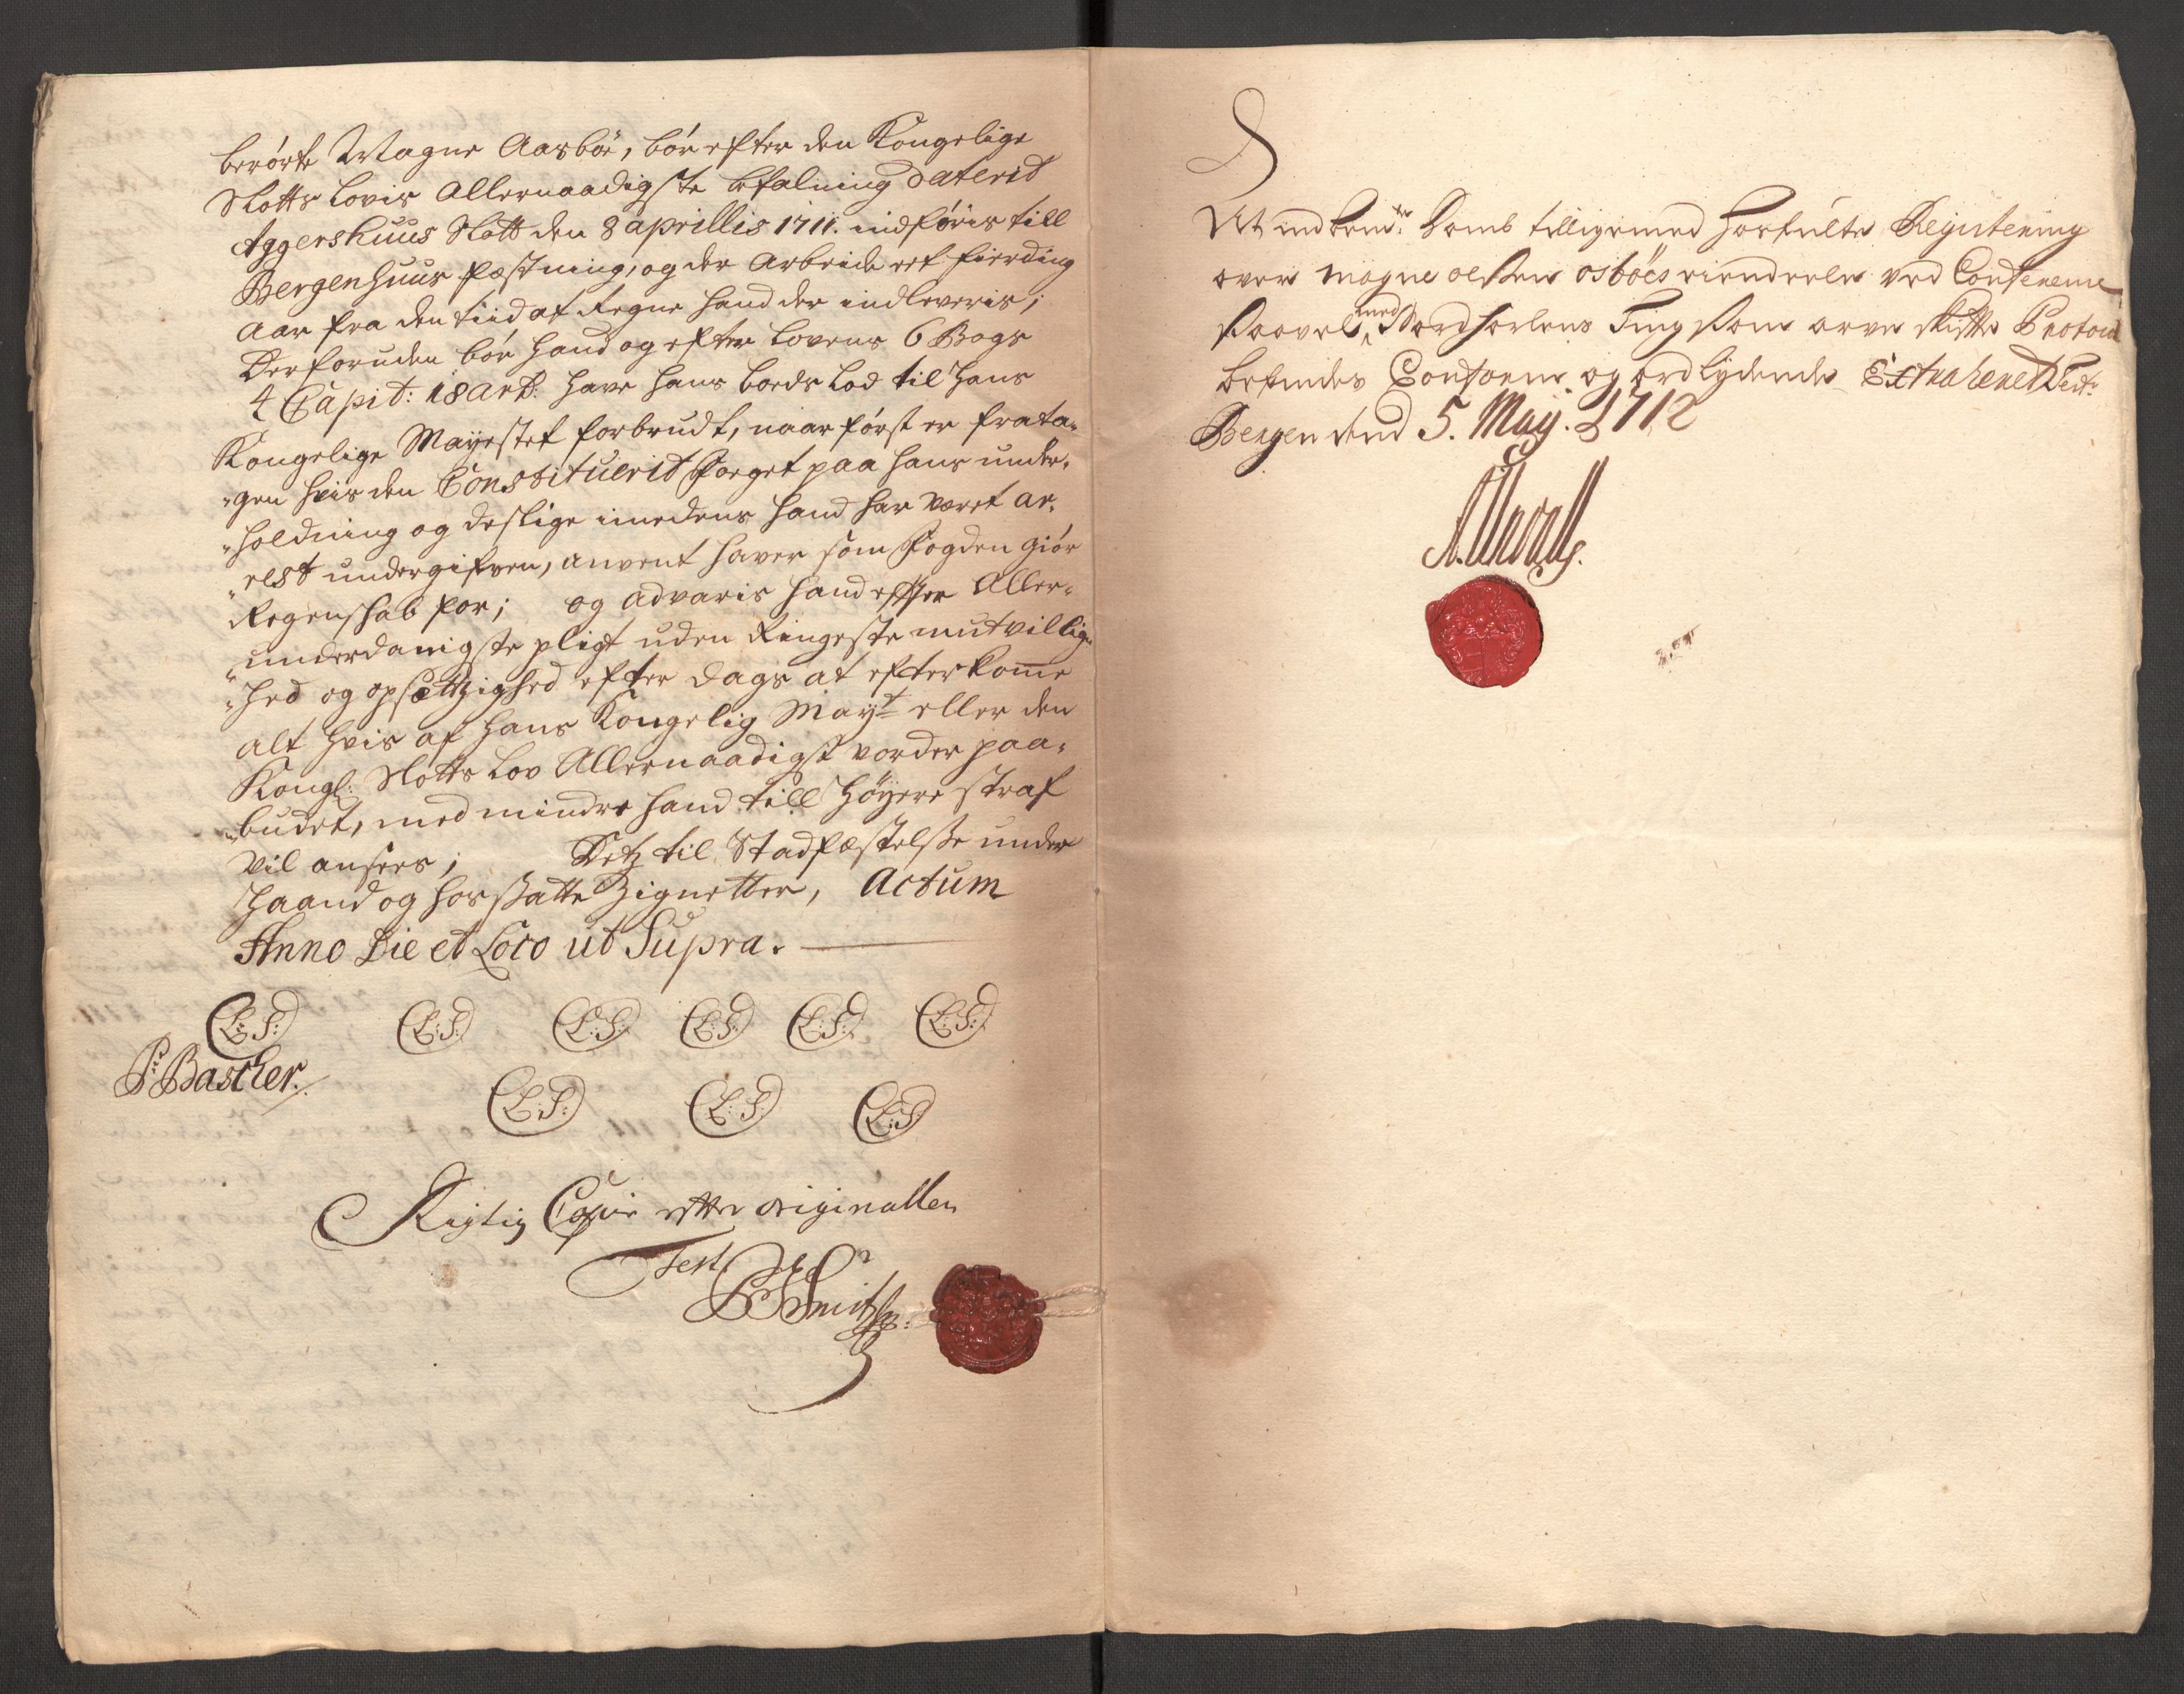 berörte Magne Aarböe, bör efter den Kongelige
Slotts Lovis Allernaadigste befalning daterid
Aggershuus Slott den 8 aprillis 1711. indföris till
Bergenhuus fæstning, og der Arbeide eet fierding
Aar fra den tiid at regne hand der indleveris;
Derforuden bör hand og efter Lovens 6 Bogs
4 Capit: 18 art: have hans boeds lod til hans
Kongelige Mayestet forbrudt, naar först er frata-
-gen hvis den Constituerid Foeget paa hans under-
-holdning og deslige imedens hand har veret ar-
-rest undergifven, anvent haver som Fogden giör
Regenskab for; og advaris hand efter Aller-
-underdanigste pligt uden Ringeste mutvillig-
-hed og opsettzighed efter dags at efterkome
alt hvis af hans Kongelig May:t eller den
Kongl: Slotts Lov Allernaadigst vorder paa-
-budet, med mindre hand till höyere straf
vil ansees; Detz til Stadfæstelsse under
haand og hossatte Zignetter, Actum
Anno Die et Loco ut Supra.
L:S: L:S: L:S: L:S: L:S: L:S:
P: Bascher.
L:S: L:S: L:S:
Rigtig Copie efter originallen
Test
Smith
At indbem:te Domb tilligemed hosfulte Registering
over Magne olssens osböes eiendeele ved Confererne
saavel med Nordhorlens Ting som arve skifte Protocol
befindes Conform og ordlydende Extraheret Test:
Bergen dend 5. Maij. 1712